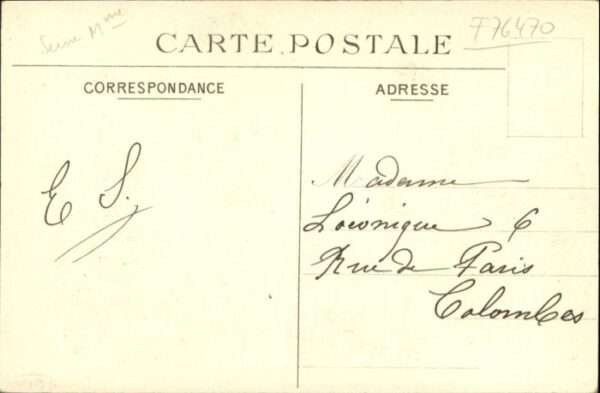 Seine Mme
F76470
CARTE POSTALE
CORRESPONDANCE
ADRESSE
E S.
Madame
Loéonique 6
Rue de Paris
Colombes